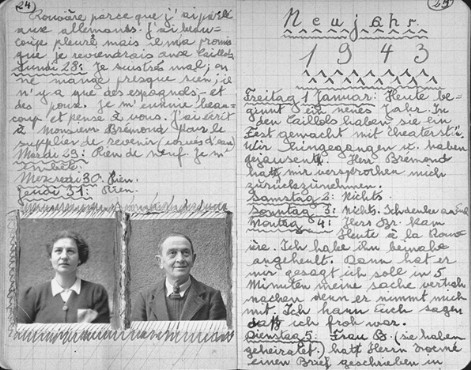 24
Rouvière parce que j'ai parlé
aux allemands. J'ai beau-
coup pleuré mais il m'a promis
que je reviendrais aux Caillols
Lundi 28: Je me suis mal, on
ne mange presque rien; il
n'y a que des espagnols, et
des poux. Je m'ennuie beau-
coup et pense à vous. J'ai écrit
à Monsieur Brémond pour le
supplier de revenir
Mardi 29: Rien de neuf Je m'
embête
Mercredi 30: Rien.
Jeudi 31: Rien.
25
Neujahr
1943
Freitag 1 Januar: Heute be-
ginnt ein neues Jahr. In
den Caillols haben sie ein
Fest gemacht mit Theaterst.
Wir hingegangen u. haben
gejausent. Herr Bremond
hatt mir versprochen mich
zurückzunehmen.
Samstag 2: Nichts
Sonntag 3: Nichts. Ich denke an
Montag 4: Herr Br. kam
Heute à la Rouv
ière. Ich habe ihn beinahe
angeheult. Dann hat er
mir gesagt ich soll in 5
Minuten meine sache
machen denn er nimmt mich
mit. Ich kann Euch sagen
daß ich froh war.
Dienstag 5: Frau B. (sie haben
geheiratet) hatt Herrn
einen Brief geschrieben in